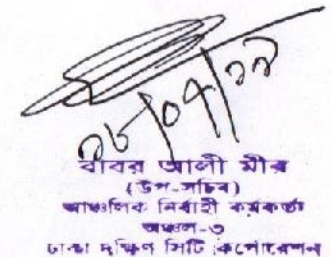 বাবর আলী মীর
(উপ-সচিব)
আঞ্চলিক নির্বাহী কর্মকর্তা
অঞ্চল-৩
ঢাকা দক্ষিণ সিটি কর্পোরেশন